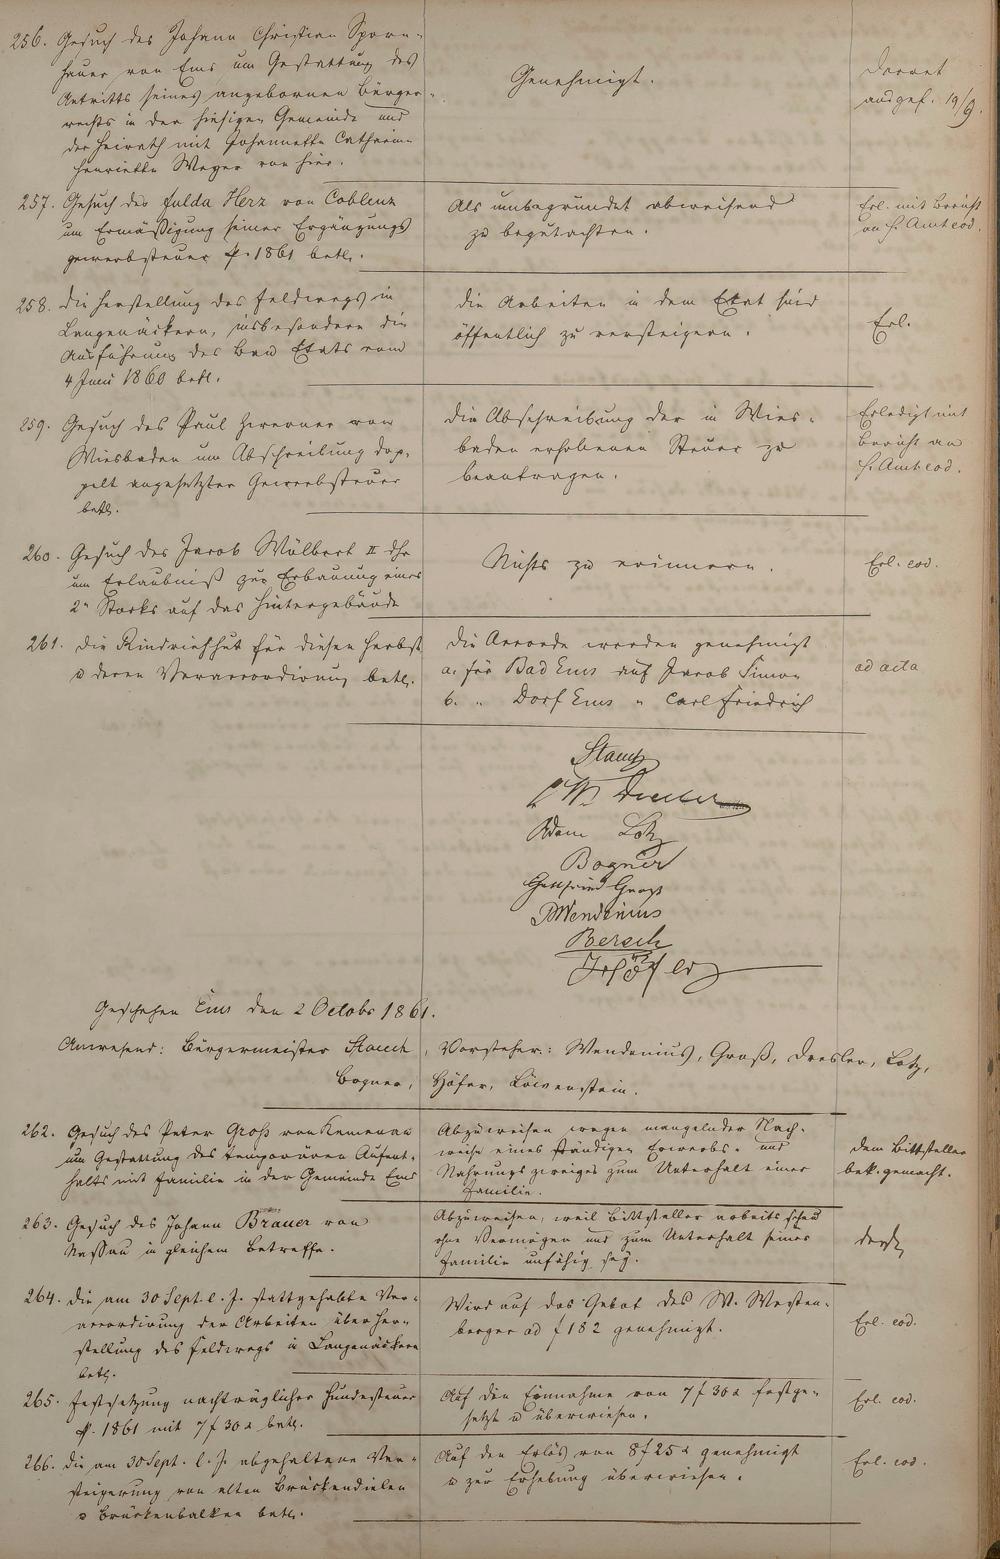 256. Gesuch des Johann Christian Sporn-
hauer von Ems um Gestattung des
Antritts seines angebornen Bürger-
rechts in der hiesigen Gemeinde und
der Heirath mit Johannette Catharina
Henriette Weyer von hier.
Genehmigt.
Decret
ausgef. 19/9.
257. Gesuch des Fulda Herz von Coblenz
um Ermäßigung seiner Ergänzungs
gewerbsteuer p. 1861 betr.
Als unbegründet abweisend
zu begutachten.
Erl. mit Bericht
an H. Amt eod.
258. Die Herstellung des Feldwegs in
Langenäckern, insbesondere die
Ausführung des Bau Etats vom
4 Juni 1860 betr.
Die Arbeiten in dem Etat sind
öffentlich zu versteigern.
Erl.
259. Gesuch des Paul Zwerner von
Wiesbaden um Abschreibung dop-
pelt angesetzter Gewerbsteuer
betr.
Die Abschreibung der in Wies-
baden erhobenen Steuer zu
beantragen.
Erledigt mit
Bericht an
H. Amt eod.
260. Gesuch des Jacob Wölbert II dhr
um Erlaubniß zur Erbauung eines
2n Stocks auf das Hintergebäude
Nichts zu erinnern.
Erl. eod.
261. Die Rindviehhut für diesen Herbst
u deren Veraccordirung betr.
Die Accorde werden genehmigt
a. für Bad Ems auf Jacob Simon
b. " Dorf Ems " Carl Friedrich
ad acta
Stauch
Adam Lotz
Bogner
Gottfried Groß
Wendenius
Bersch
Höfer
Geschehen Ems den 2 Octobr 1861.
Anwesend: Bürgermeister Stauch, Vorsteher: Wendenius, Groß, Dresler, Lotz,
Bogner, Höfer, Löwenstein.
262. Gesuch des Peter Groß von Kemenau
um Gestattung des temporären Aufent-
halts mit Familie in der Gemeinde Ems
Abzuweisen wegen mangelnder Nach-
weise eines ständigen Erwerbs- und
Nahrungszweiges zum Unterhalt einer
Familie.
dem Bittsteller
bek. gemacht.
263. Gesuch des Johann Brauer von
Nassau in gleichem Betreffe.
Abzuweisen, weil Bittsteller arbeitsscheu
ohne Vermögen und zum Unterhalt seiner
Familie unfähig sey.
264. Die am 30 Sept. l. J. stattgehabte Ver-
accordirung der Arbeiten über Her-
stellung des Feldwegs in Langenäckern
betr.
Wird auf das Gebot des W. Westen-
berger ad f 182 genehmigt.
Erl. eod.
265. Festsetzung nachträglicher Hundesteuer
p. 1861 mit 7 f 30 x betr.
Auf die Einnahme von 7 f 30 x festge-
setzt u überwiesen.
Erl. eod.
266. Die am 30 Sept. l. J. abgehaltene Ver-
steigerung von alten Brückendielen
u Brückenbalken betr.
Auf den Erlös von 8 f 25 x genehmigt
u zur Erhebung überwiesen.
Erl. eod.